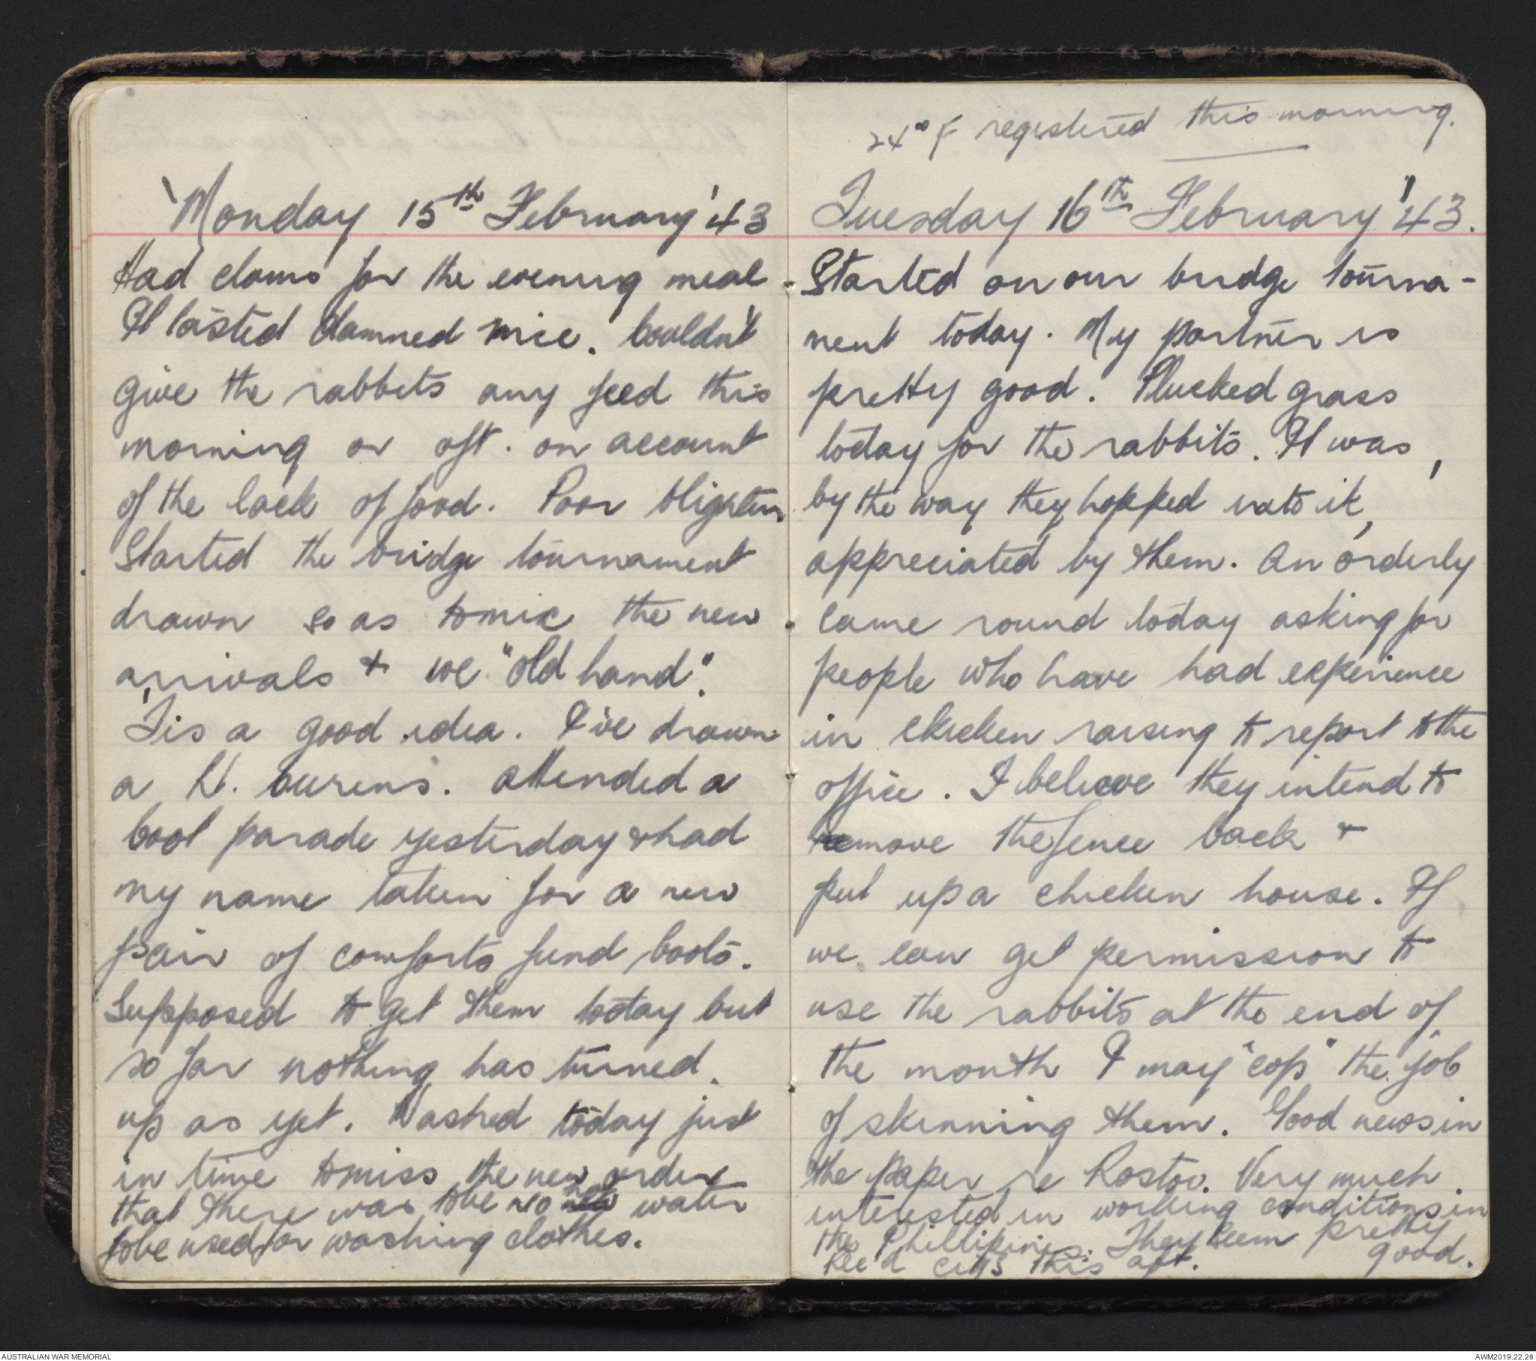 Monday 15th February '43
Had clams for the evening meal.
It tasted damned nice. Couldn't
give the rabbits any feed this
morning or aft. on account
of the lack of food. Poor blighters
Started the bridge tournament
drawn so as to mix the new
arrivals & we "old hand".
'Tis a good idea. I've drawn
a Lt.
attended a
boot parade yesterday & had
my name taken for a new
pair of comforts fund boots.
Supposed to get them today but
so far nothing has turned
up as yet. Washed today just
in time to miss the new order
that there was to be no water
to be used for washing clothes.
24° F registered this morning.
Tuesday 16th February '43.
Started on our bridge tourna-
ment today. My partner is
pretty good. Plucked grass
today for the rabbits. It was,
by the way they hopped into it,
appreciated by them. An orderly
came round today asking for
people who have had experience
in chicken raising to report to the
office. I believe they intend to
remove the fence back &
put up a chicken house. If
we can get permission to
use the rabbits at the end of
the month I may "cop" the job
of skinning them. Good news in
the paper re Rostov. Very much
interested in working conditions in
the Phillipines. They seem pretty
good.
Rec'd cigs this aft.
AUSTRALIAN WAR MEMORIAL
AWM2019.22.28